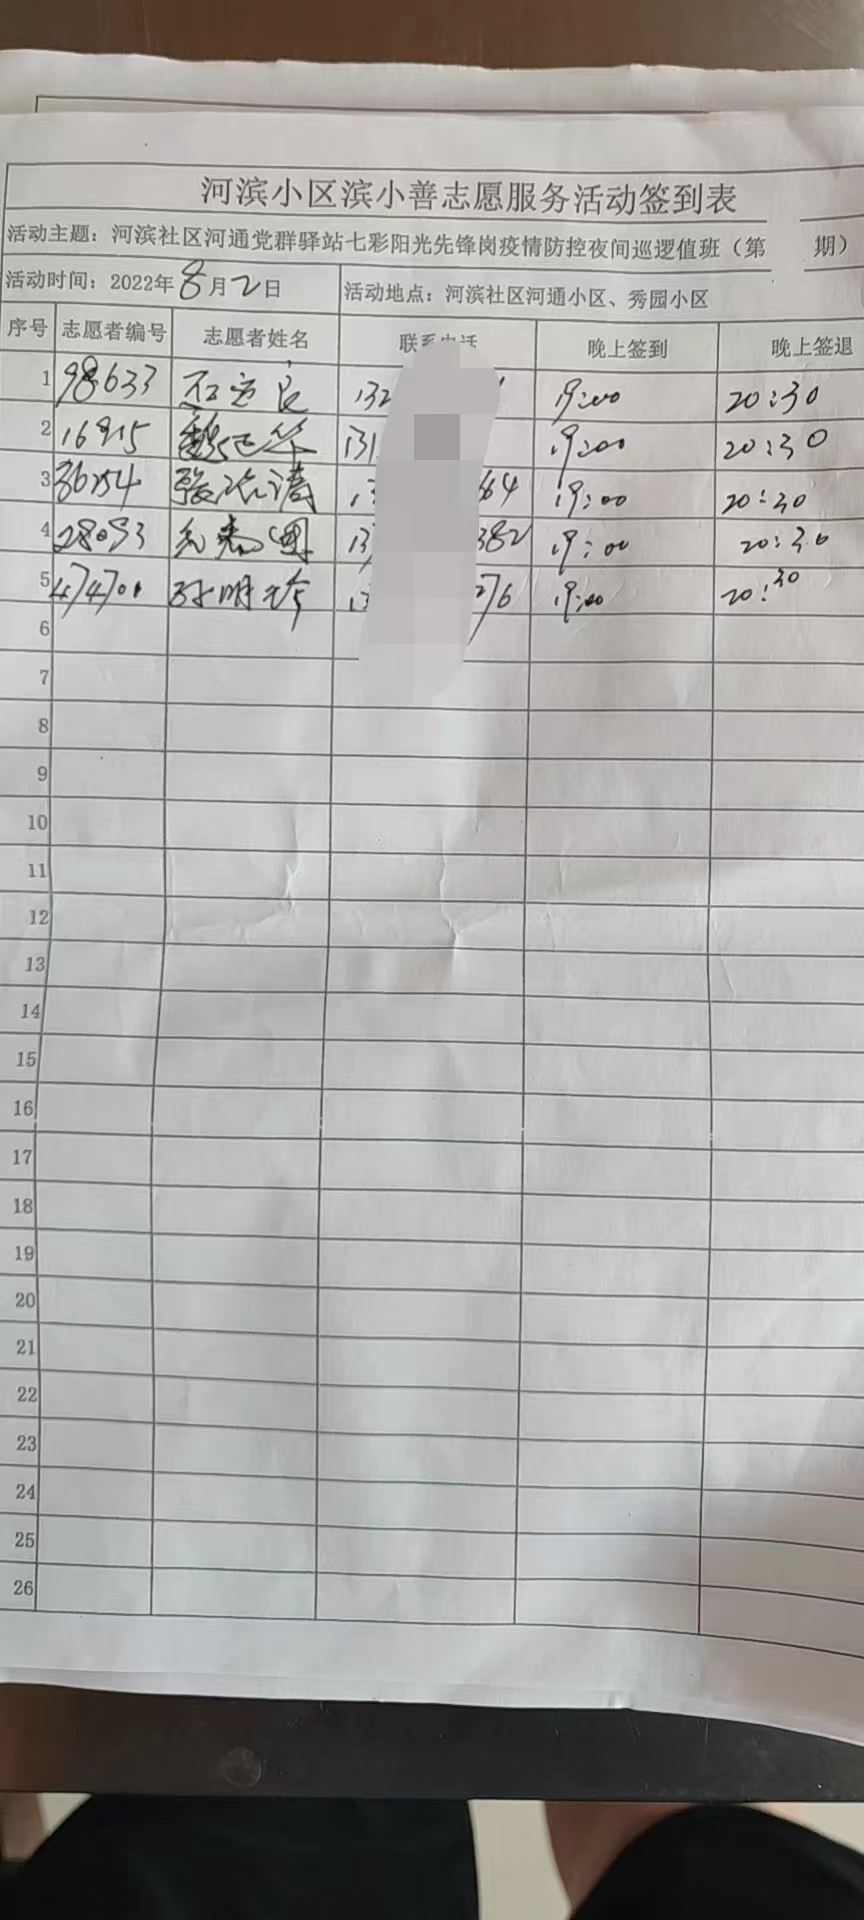 河滨小区滨小善志愿服务活动签到表
活动主题：河滨社区河通党群驿站七彩阳光先锋岗疫情防控夜间巡逻值班（第 期）
活动时间：2022年8月2日 活动地点：河滨社区河通小区、秀园小区
序号 志愿者编号 志愿者姓名 联系电话 晚上签到 晚上签退
1 98633 132 19:00 20:30
2 16915 131 19:00 20:30
3 64 19:00 20:30
4 28093 382 19:00 20:30
5 47470 孙明珍 276 19:00 20:30
6
7
8
9
10
11
12
13
14
15
16
17
18
19
20
21
22
23
24
25
26